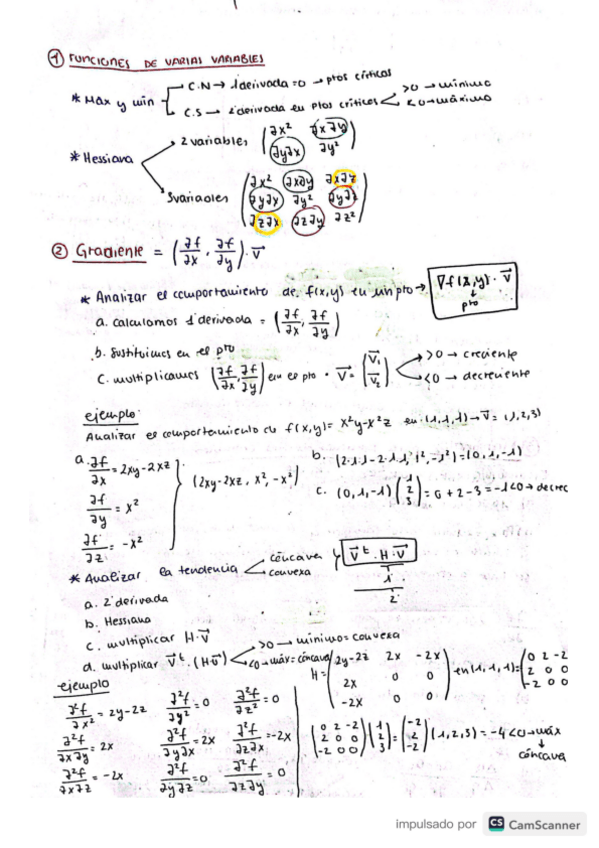 ① FUNCIONES DE VARIAS VARIABLES
* Max y min
C.N → 1ª derivada = 0 → ptos críticos
C.S → 2ª derivada en ptos críticos
>0 → mínimo
<0 → máximo
* Hessiana
2 variables (∂x² ∂x∂y
∂y∂x ∂y²)
3 variables (∂x² ∂x∂y ∂x∂z
∂y∂x ∂y² ∂y∂z
∂z∂x ∂z∂y ∂z²)
② Gradiente = (∂f/∂x, ∂f/∂y) · v⃗
* Analizar el comportamiento de f(x,y) en un pto → ∇f(x,y) · v⃗
pto
a. calculamos 1ª derivada = (∂f/∂x, ∂f/∂y)
b. sustituimos en el pto
c. multiplicamos (∂f/∂x, ∂f/∂y) en el pto · v⃗ = (v⃗₁
v⃗₂)
>0 → creciente
<0 → decreciente
ejemplo:
Analizar el comportamiento de f(x,y) = x²y-x²z en (1,1,1) → v⃗ = (1,2,3)
a. ∂f/∂x = 2xy-2xz
∂f/∂y = x²
∂f/∂z = -x²
(2xy-2xz, x², -x²)
b. (2·1·1-2·1·1, 1², -1²) = (0,1,-1)
c. (0,1,-1) (1
2
3) = 0+2-3 = -1 <0 → decrec
* Analizar la tendencia
cóncava
convexa
v⃗ᵗ · H · v⃗
1
2
a. 2ª derivada
b. Hessiana
c. multiplicar H·v⃗
d. multiplicar v⃗ᵗ · (H·v⃗)
>0 → mínimo = convexa
<0 → máx = cóncava
ejemplo
∂²f/∂x² = 2y-2z ∂²f/∂y² = 0 ∂²f/∂z² = 0
∂²f/∂x∂y = 2x ∂²f/∂y∂x = 2x ∂²f/∂z∂x = -2x
∂²f/∂x∂z = -2x ∂²f/∂y∂z = 0 ∂²f/∂z∂y = 0
H = (2y-2z 2x -2x
2x 0 0
-2x 0 0)
en (1,1,1) = (0 2 -2
2 0 0
-2 0 0
(0 2 -2
2 0 0
-2 0 0) (1
2
3) = (-2
2
-2) (1,2,3) = -4 <0 → máx
cóncava
impulsado por CS CamScanner